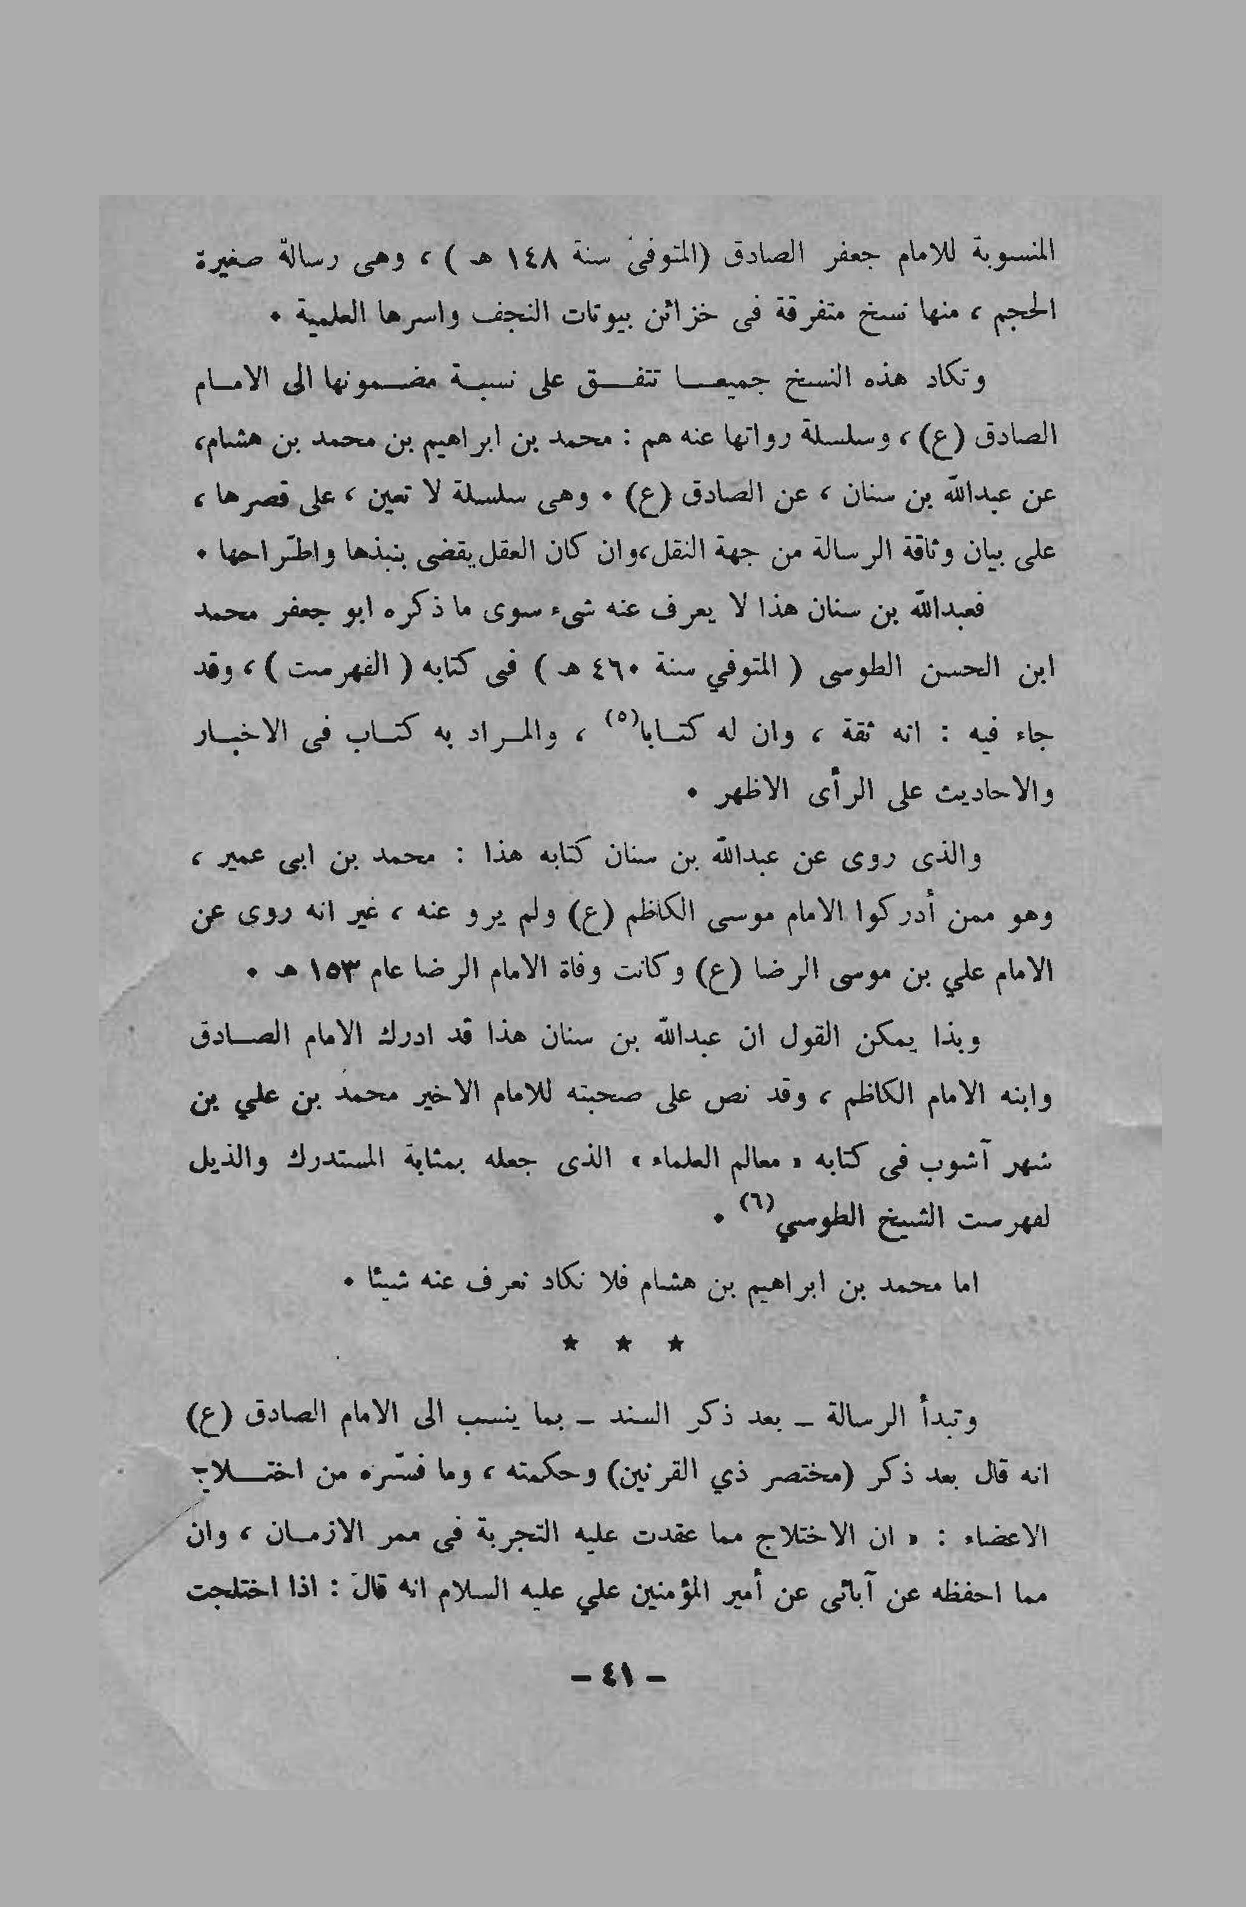 المنسوبة للامام جعفر الصادق (المتوفى سنة ١٤٨ هـ) ، وهى رسالة صغيرة
الحجم ، منها نسخ متفرقة فى خزائن بيوتات النجف واسرها العلمية .
وتكاد هذه النسخ جميعا تتفق على نسبة مضمونها الى الامام
الصادق (ع) ، وسلسلة رواتها عنه هم : محمد بن ابراهيم بن محمد بن هشام،
عن عبدالله بن سنان ، عن الصادق (ع) . وهى سلسلة لا تعين ، على قصرها ،
على بيان وثاقة الرسالة من جهة النقل،وان كان العقل يقضى بنبذها واطّراحها .
فعبدالله بن سنان هذا لا يعرف عنه شىء سوى ما ذكره ابو جعفر محمد
ابن الحسن الطوسى ( المتوفي سنة ٤٦٠ هـ ) فى كتابه ( الفهرست ) ، وقد
جاء فيه : انه ثقة ، وان له كتابا(٥) ، والمراد به كتاب فى الاخبار
والاحاديث على الرأى الاظهر .
والذى روى عن عبدالله بن سنان كتابه هذا : محمد بن ابى عمير ،
وهو ممن أدركوا الامام موسى الكاظم (ع) ولم يرو عنه ، غير انه روى عن
الامام علي بن موسى الرضا (ع) وكانت وفاة الامام الرضا عام ١٥٣ هـ .
وبذا يمكن القول ان عبدالله بن سنان هذا قد ادرك الامام الصادق
وابنه الامام الكاظم ، وقد نص على صحبته للامام الاخير محمد بن علي بن
شهر آشوب فى كتابه « معالم العلماء » الذى جعله بمثابة المستدرك والذيل
لفهرست الشيخ الطوسي(٦) .
اما محمد بن ابراهيم بن هشام فلا نكاد نعرف عنه شيئا .
★ ★ ★
وتبدأ الرسالة ــ بعد ذكر السند ــ بما ينسب الى الامام الصادق (ع)
انه قال بعد ذكر (مختصر ذي القرنين) وحكمته ، وما فسّره من اختلاج
الاعضاء : « ان الاختلاج مما عقدت عليه التجربة فى ممر الازمان ، وان
مما احفظه عن آبائى عن أمير المؤمنين علي عليه السلام انه قال : اذا اختلجت
– ٤١ –